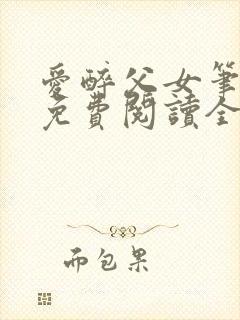 愛醉父女筆
免費閱讀全
而包果